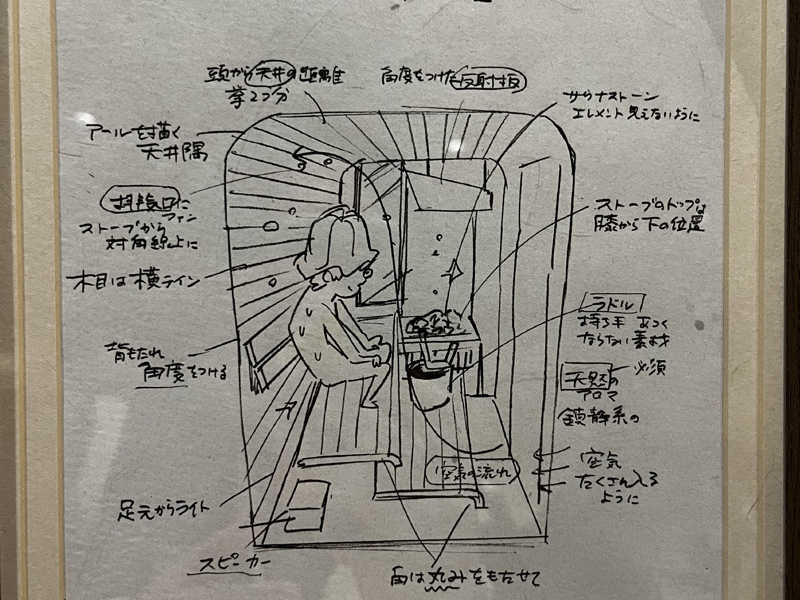 頭から天井の距離
拳2つ分
角度をつけた反射板
サウナストーン
エレメント見えないように
アールを描く
天井隅
排気口に
ファン
ストーブから
対角線上に
木目は横ライン
背もたれ
角度をつける
足元からライト
スピーカー
ストーブのトップは
膝から下の位置
ラドル
持ち手 あつく
ならない素材
天然の
必須
アロマ
鎮静系の
空気の流れ
空気
たくさん入る
ように
角は丸みをもたせて